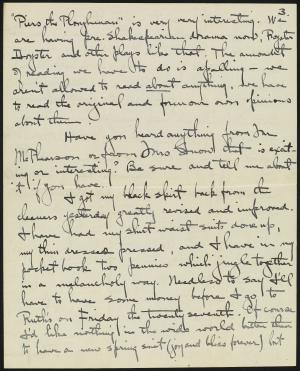 3.
"Piers the Ploughman" is very very interesting. We
are having pre-Shakespearian drama now, Royster
Doyster and other plays like that. The amount
of reading we have to do is appalling - we
aren't allowed to read about anything, we have
to read the original and form our own opinions
about them.
Have you heard anything from Mr
McPhearson or from Mrs Snow that is excit-
ing or interesting? Be sure and tell me about
it if you have.
I got my black skirt back from the
cleaners yesterday greatly revised and improved.
I have had my shirt waist suits done up,
my thin dresses pressed, and I have in my
pocket book two pennies which jingle together
in a melancholy way. Needless to say I'll
have to have some money before I go to
Ruth's on Friday the twenty seventh. Of course
I'd like nothing in the wide world better than
to have a new spring suit (joy and bliss forever) but